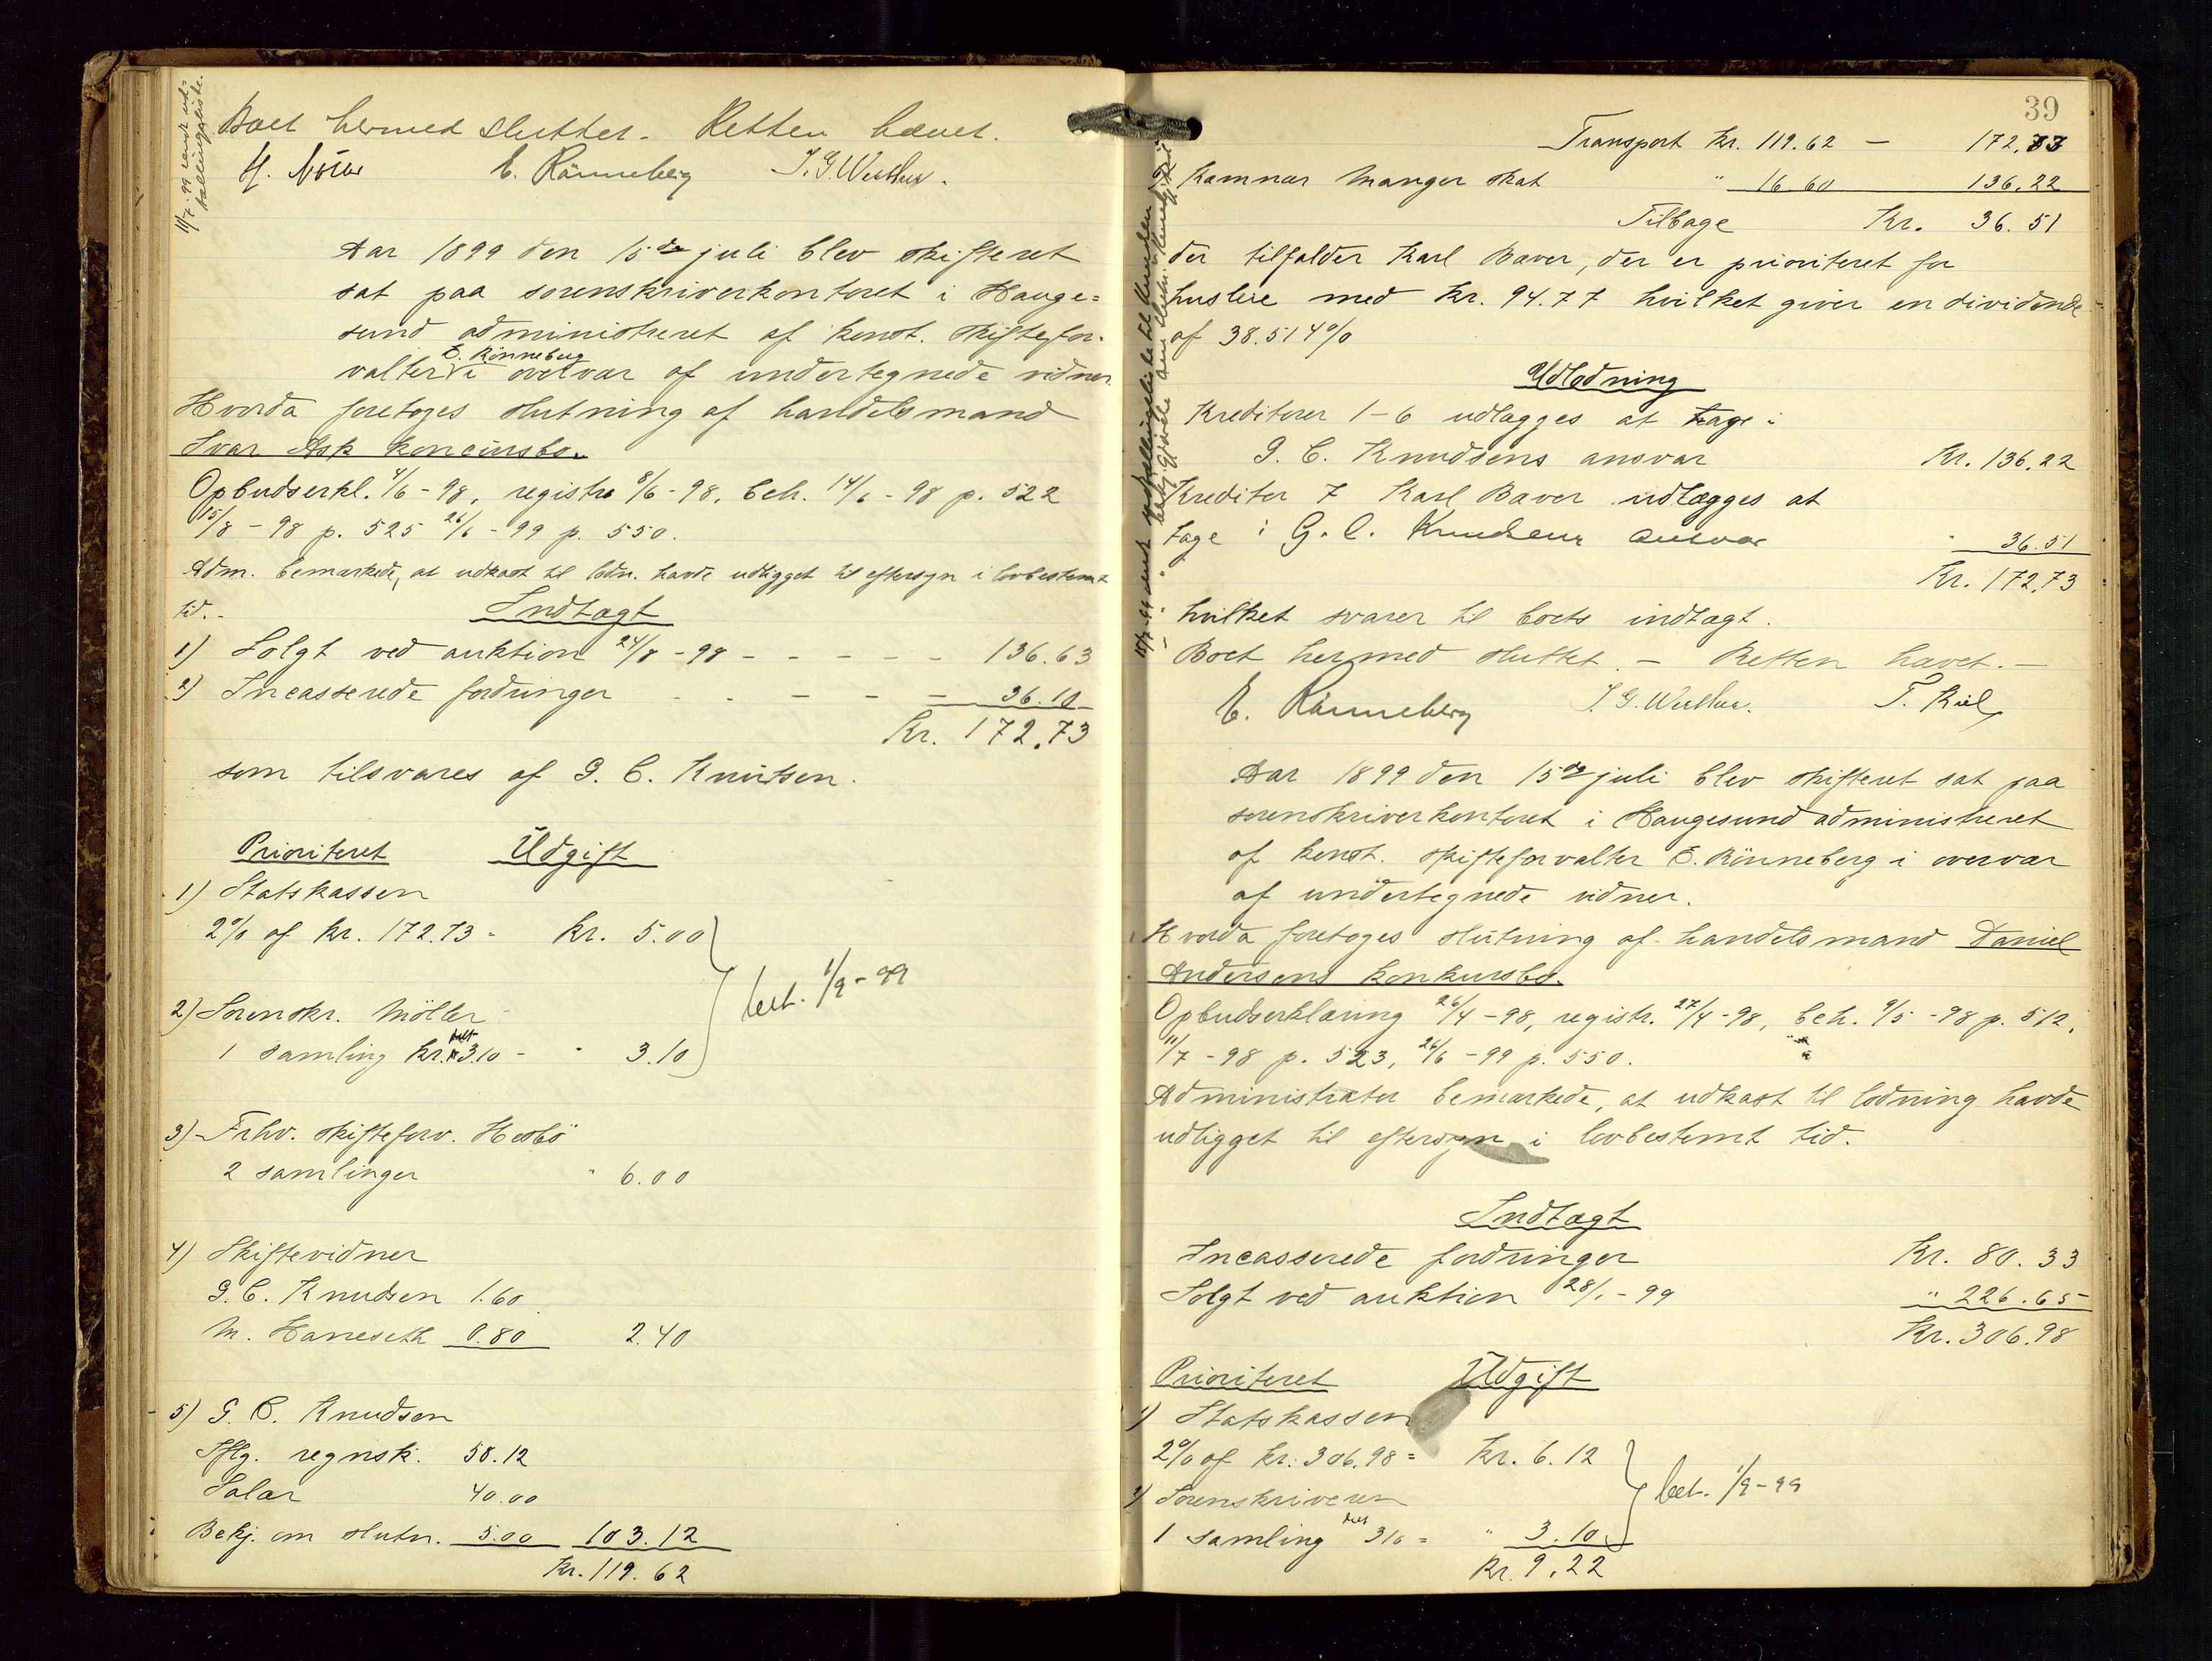 11/7-99 sendt ud-
kallingsliste.
Boet hermed sluttet. Retten hævet.
E. Rönneberg J. G. Westhus.
Aar 1899 den 15de juli blev skifteret
sat paa sorenskriverkontoret i Hauge=
sund administreret af konst. skiftefor-
E. Rönneberg
valter i overvær af undertegnede vidner.
Hvorda foretoges slutning af handelsmand
Ivar Ask koncursbo.
Opbudserkl. 4/6-98, registre 8/6-98, beh. 14/6-98 p. 522
15/8-98 p. 525 26/6-99 p. 550.
Adm. bemærkede, at udkast til lodn. havde udligget til eftersyn i lovbestemt
tid.-
Indtægt
1) Solgt ved auktion 24/8-98 - - - - - 136.63
2) Incasserede fordringer - - - - - 36.10
Kr. 172.73
som tilsvares af G. C. Knutsen.
Prioriteret Udgift
1) Statskassen
2% af kr. 172.73 = kr. 5.00
bet. 1/9-99
2) Sorenskr. Möller
1 samling kr. 3.10 - " 3.10
3) Frhv. skifteforv. Hesbö
2 samlinger " 6.00
4) Skiftevidner
G. C. Knudsen 1.60
M. Haneseth 0.80 2.40
5) G. C. Knudsen
Iflg. regnsk. 58.12
Salær 40.00
Bekj. om slutn. 5.00 103.12
Kr. 119.62
39
Transport Kr. 119.62 - 172.73
Kæmnær Manger skat " 16 60 136.22
Tilbage Kr. 36.51
der tilfalder Karl Baver, der er prioriteret for
husleie med Kr. 94.77 hvilket giver en dividende
af 38.514%
Udlodning
Kreditorer 1-6 udlægges at tage i
G. C. Knudsens ansvar Kr. 136.22
Kreditor 7 Karl Baver udlægges at
tage i G. C. Knudsens ansvar " 36.51
Kr. 172.73
hvilket svarer til boets indtægt.
Boet hermed sluttet. - Retten hævet. -
E. Rönneberg J. G. Westhus. T. Kiel
Aar 1899 den 15de juli blev skifteret sat paa
sorenskriverkontoret i Haugesund administreret
af konst. skifteforvalter E. Rönneberg i overvær
af undertegnede vidner.
Hvorda foretoges slutning af handelsmand Daniel
Andersens konkursbo.
Opbudserklæring 26/4-98, registr. 27/4-98, beh. 9/5-98 p. 512,
11/7-98 p. 523, 26/6-99 p. 550.
Administrator bemærkede, at udkast til lodning havde
udligget til eftersyn i lovbestemt tid.
Indtægt
Incasserede fordringer Kr. 80.33
Solgt ved auktion 28/1-99 " 226.65
Kr. 306.98
Prioriteret Udgift
1) Statskassen
2% af kr. 306.98 = Kr. 6.12
bet. 1/9-99
2) Sorenskriveren
1 samling 310 = " 3.10
Kr. 9.22